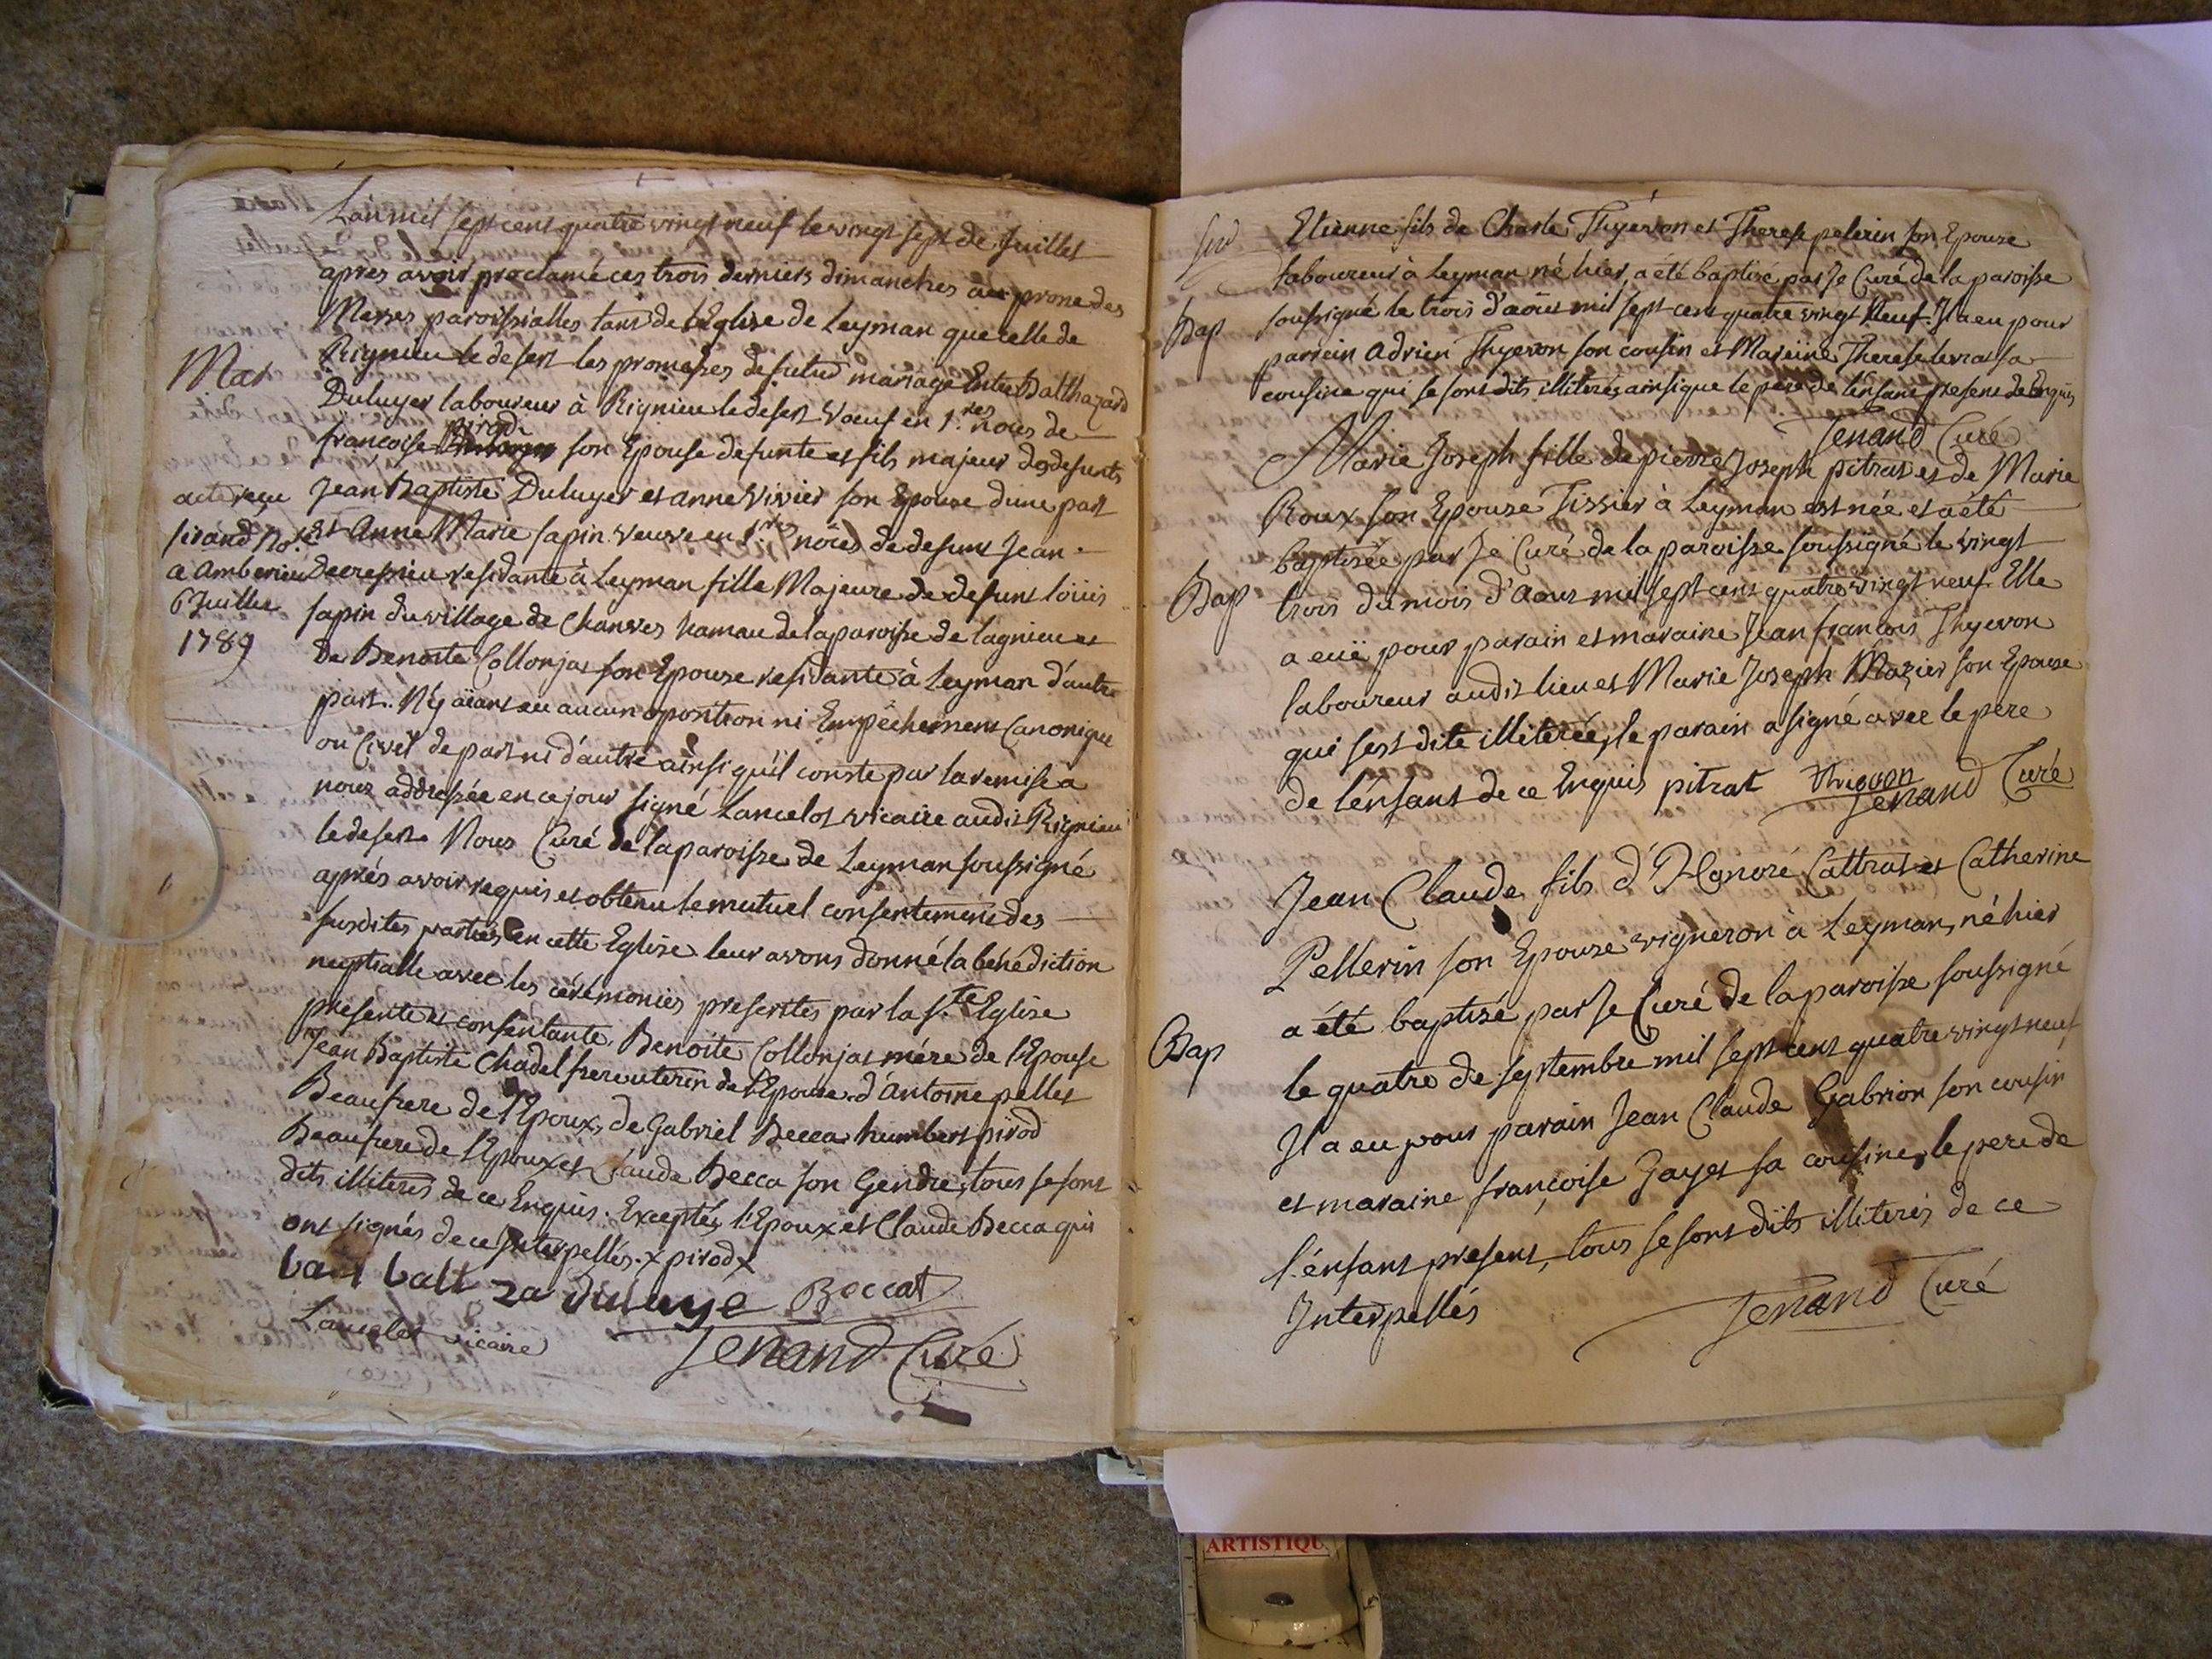 L'an mil sept cent quatre vingt neuf le vingt sept de Juillet
apres avoir proclamé ces trois derniers dimanches au prone des
Messes paroissialles tant de l'Eglise de Leyman que celle de
Rignieu le desert les promesses de futur mariage Entre Balthazard
Mar
Duluyer laboureur à Rignieu le desert Voeuf en 1.res noces de
pirod
francoise son Epouse defunte et fils majeur des defunts
Jean Baptiste Duluyer et anne Vivier son Epouse d'une part
acte reçu
Sirand No.re
a Amberieu
6 Juillet
1789
Et Anne Marie sapin veuve en 1.res nôces de defunt Jean
Decressieu residante à Leyman fille Majeure de defunt loüis
sapin du village de Chanves hamau de la paroisse de lagnieu et
de Benoite Collonjat son Epouse residante à Leyman d'autre
part. N'y aïant eu aucun oposition ni Empêchement Canonique
ou Civil de part ni d'autre ainsi qu'il conste par la remise a
nous addressée en ce jour signé Lancelot vicaire audit Rignieu
le desert Nous Curé de la paroisse de Leyman soussigné
aprés avoir requis et obtenu le mutuel consentement des
susdites parties en cette Eglise leur avons donné la bénédiction
nuptialle avec les cérémonies prescrites par la s.te Eglise
presente et consentante Benoite Collonjat mére de l'Epouse
Jean Baptiste Chadel frere uterin de l'Epouse d'Antoine pellet
Beaufrere de l'Epoux, de Gabriel Becca humbert pirod
Beaufrere de l'Epoux et Claude Becca son Gendre, tous se sont
dits illiteres de ce Enquis. Exceptés l'Epoux et Claude Becca qui
ont signés de ce Interpellés. x pirod x
balt za duluyé Beccat
Lancelot vicaire
Jenand Curé
Etienne fils de Charle Thyévon et Therese pelerin son Epouse
laboureur à Leyman né hier, a été baptisé par Je Curé de la paroisse
Bap
soussigné le trois d'aôut mil sept cent quatre vingt Neuf. Il a eu pour
parrein Adrien Thyevon son cousin et Mareine Therese levrat sa
cousine qui se sont dits illiterés ainsi que le pere de l'enfant present de ce Enquis
Jenand Curé
Marie Joseph fille de pierre Joseph pitrat et de Marie
Roux son Epouse Tissier à Leyman est née et a été
baptisée par Je Curé de la paroisse soussigné le vingt
Bap
trois du mois d'Aout mil sept cent quatre vingt neuf Elle
a euë pour parain et maraine Jean francois Thyevon
laboureur audit lieu et Marie Joseph Mazier son Epouse
qui s'est dite illiterée, le parain a signé avec le pere
de l'enfant de ce Enquis pitrat Thievon
Jenand Curé
Jean Claude fils d'Honoré Cattrat et Catherine
Pellerin son Epouse vigneron à Leyman, né hier
a été baptisé par Je Curé de la paroisse soussigné
Bap
le quatre de septembre mil sept cent quatre vingt neuf
Il a eu pour parain Jean Claude Gabrion son cousin
et maraine françoise Gayet sa cousine, le pere de
l'enfant present, tous se sont dits illiterés de ce
Interpellés
Jenand Curé
ARTISTIQU